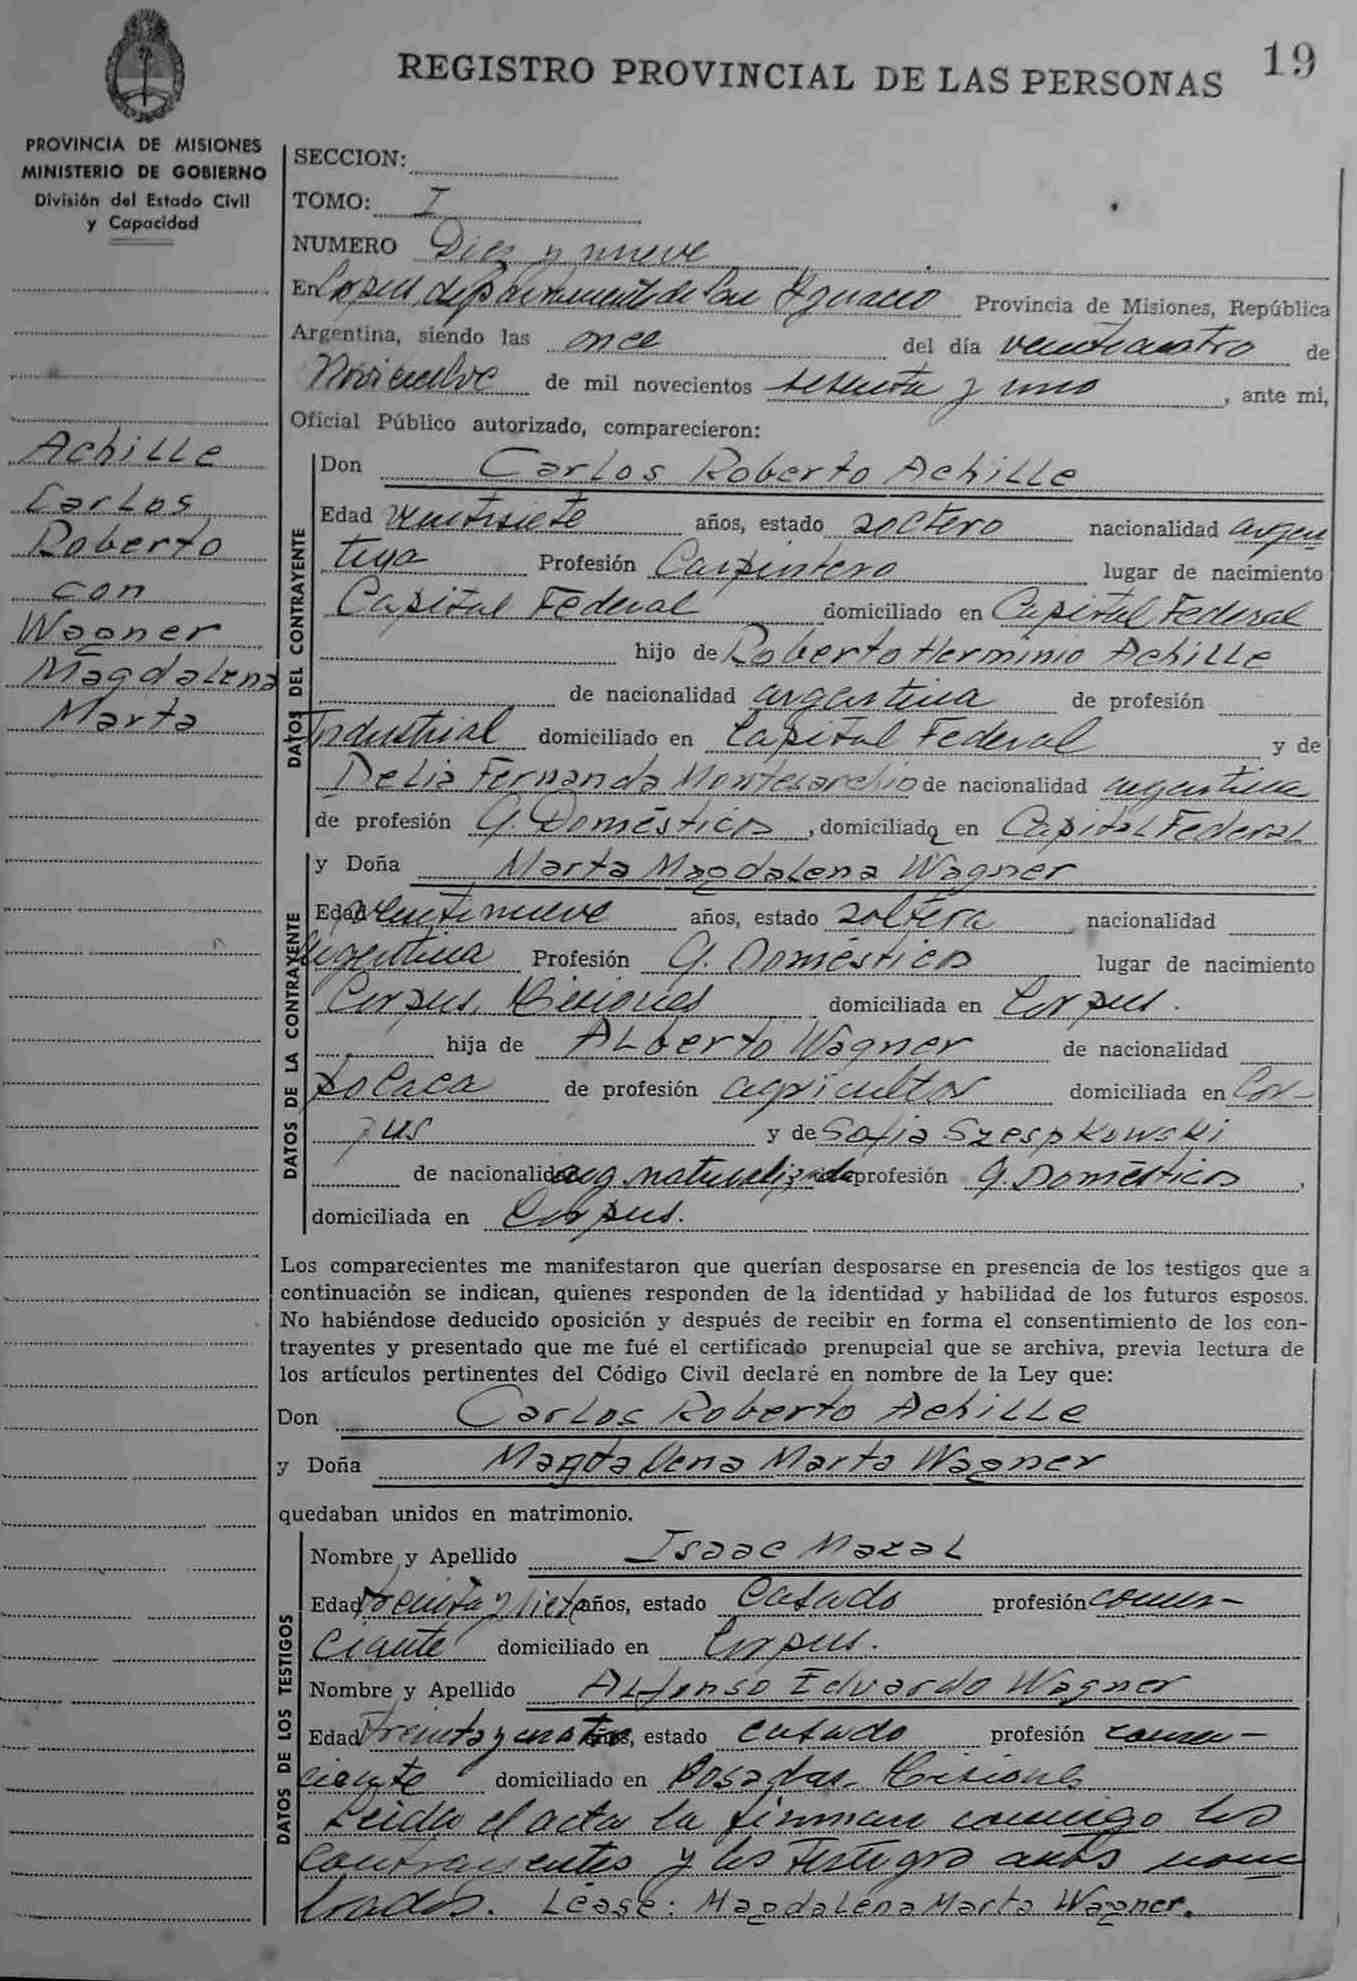 19
REGISTRO PROVINCIAL DE LAS PERSONAS
PROVINCIA DE MISIONES
MINISTERIO DE GOBIERNO
División del Estado Civil
y Capacidad
Achille
Carlos
Roberto
con
Wagner
Magdalena
Marta
SECCION:
TOMO: I
NUMERO Diez y nueve
En Corpus, departamento de San Ignacio Provincia de Misiones, República
Argentina, siendo las once del día veinticuatro de
Noviembre de mil novecientos setenta y uno, ante mi,
Oficial Público autorizado, comparecieron:
DATOS DEL CONTRAYENTE
Don Carlos Roberto Achille
Edad ventisiete años, estado soltero nacionalidad argen
tina Profesión Carpintero lugar de nacimiento
Capital Federal domiciliado en Capital Federal
hijo de Roberto Herminio Achille
de nacionalidad argentina de profesión
Industrial domiciliado en Capital Federal y de
Delia Fernanda Montesarchio de nacionalidad argentina
de profesión Q. Domésticos, domiciliada en Capital Federal
DATOS DE LA CONTRAYENTE
y Doña Marta Magdalena Wagner
Edad ventinueve años, estado soltera nacionalidad
Argentina Profesión Q. Domésticos lugar de nacimiento
Corpus, Misiones domiciliada en Corpus.
hija de Alberto Wagner de nacionalidad
polaca de profesión agricultor domiciliada en Cor-
pus y de Sofia Szespkowski
de nacionalidad arg. naturalizada profesión Q. Domésticos,
domiciliada en Corpus.
Los comparecientes me manifestaron que querían desposarse en presencia de los testigos que a
continuación se indican, quienes responden de la identidad y habilidad de los futuros esposos.
No habiéndose deducido oposición y después de recibir en forma el consentimiento de los con-
trayentes y presentado que me fué el certificado prenupcial que se archiva, previa lectura de
los artículos pertinentes del Código Civil declaré en nombre de la Ley que:
Don Carlos Roberto Achille
y Doña Magdalena Marta Wagner
quedaban unidos en matrimonio.
DATOS DE LOS TESTIGOS
Nombre y Apellido Isaac Mazal
Edad treinta y siete años, estado Casado profesión comer-
ciante domiciliado en Corpus.
Nombre y Apellido Alfonso Eduardo Wagner
Edad treinta y cuatro años, estado casado profesión comer-
ciante domiciliado en Posadas, Misiones
Leida el acta la firman conmigo los
Contrayentes y los testigos antes nom
brados. Léase: Magdalena Marta Wagner.